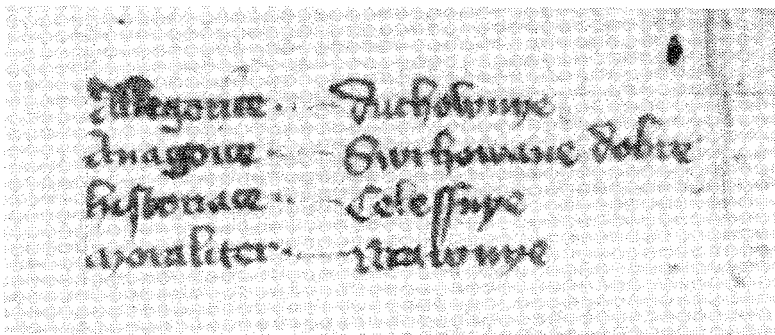 Allegorice duchownye
Anagoice Swirhowane dobre
historiace Celessnye
moraliter Mrawnye